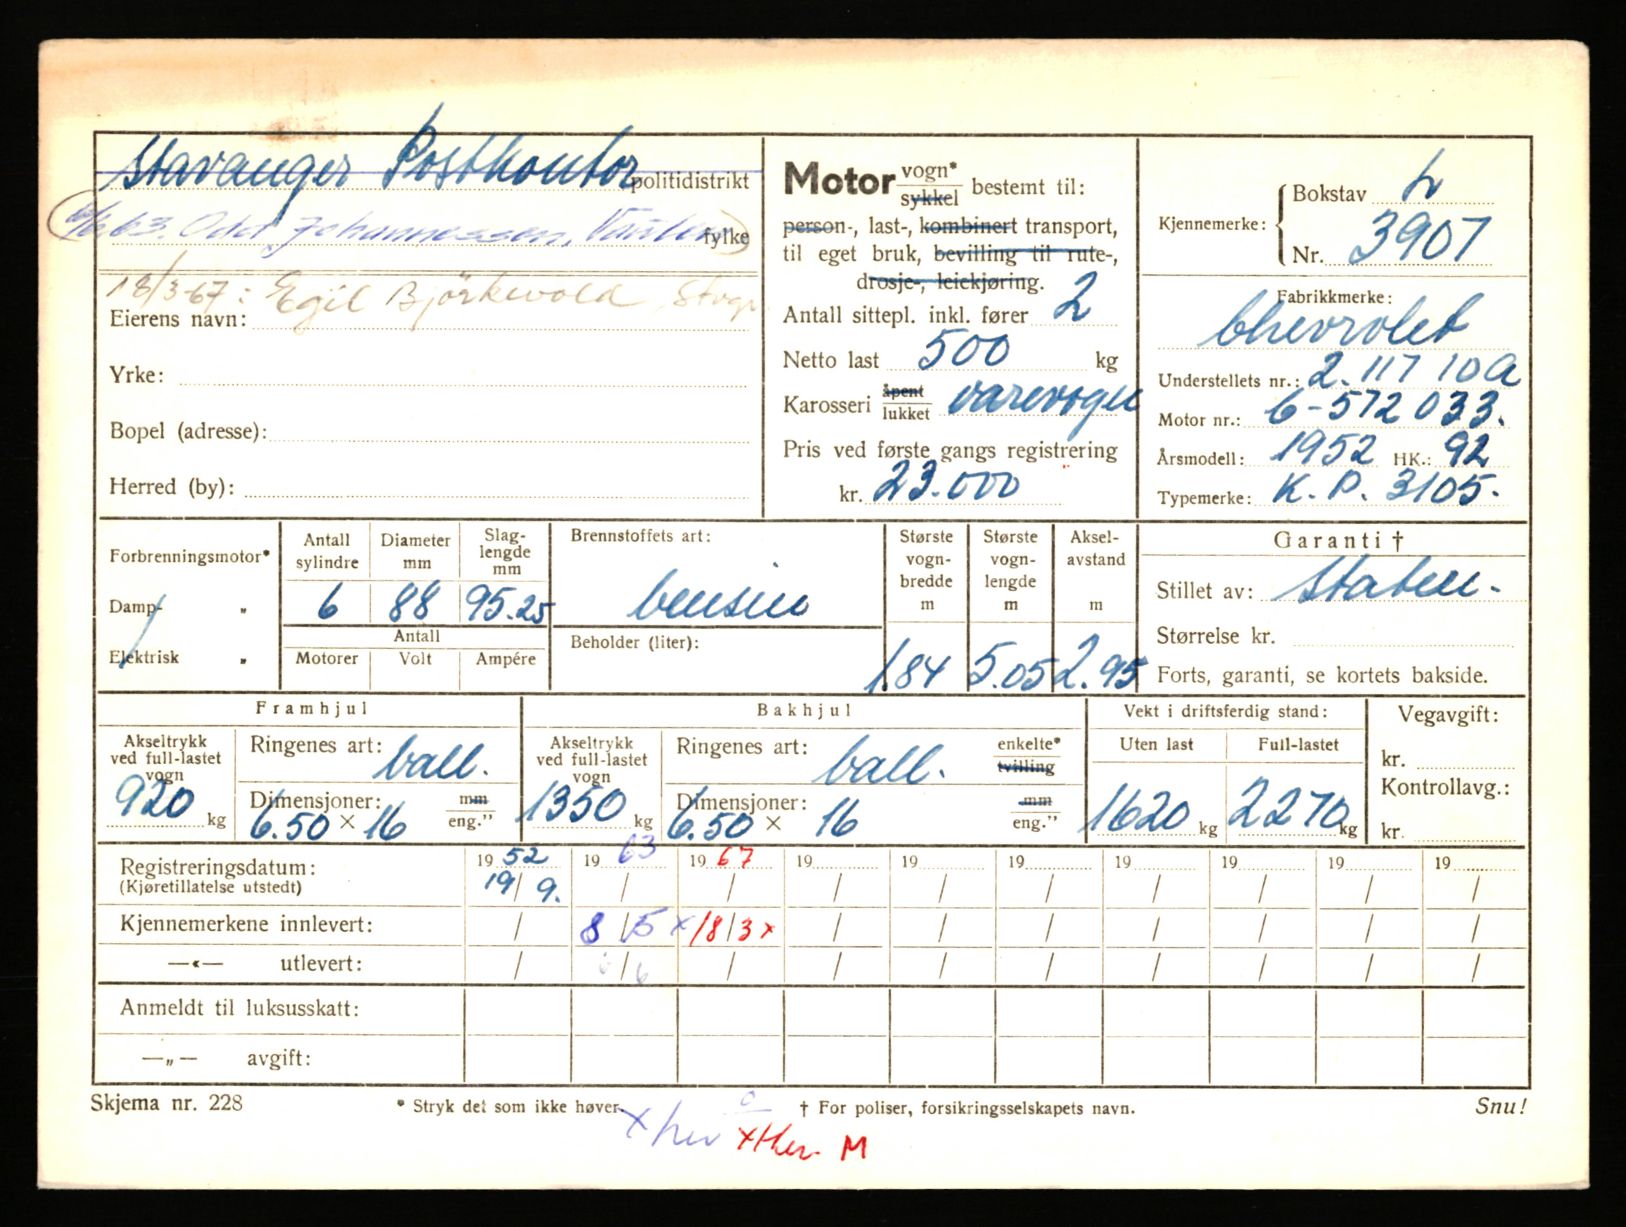 Stavanger Postkontor politidistrikt
63. Odd Johannessen, fylke
18/3-67: Egil Björkevold, Stvgr
Eierens navn:
Yrke:
Bopel (adresse):
Herred (by):
Motor vogn* sykkel bestemt til:
person-, last-, kombinert transport,
til eget bruk, bevilling til rute-,
drosje-, leiekjøring.
Antall sittepl. inkl. fører 2
Netto last 500 kg
Karosseri åpent lukket varevogn
Pris ved første gangs registrering
kr. 23.000
Kjennemerke: Bokstav L
Nr. 3907
Fabrikkmerke:
Chevrolet
Understellets nr.: 2.117 10A
Motor nr.: 6-572 033.
Årsmodell: 1952 HK.: 92
Typemerke: K.P. 3105.
Forbrenningsmotor*
Damp- "
Elektrisk "
Antall sylindre Diameter mm Slag-lengde mm
6 88 95.25
Antall
Motorer Volt Ampére
Brennstoffets art:
bensin
Beholder (liter):
Største vogn-bredde m Største vogn-lengde m Aksel-avstand m
1.84 5.05 2.95
Garanti †
Stillet av: Staten.
Størrelse kr.
Forts, garanti, se kortets bakside.
Framhjul
Akseltrykk ved full-lastet vogn
920 kg
Ringenes art: ball.
Dimensjoner: mm
6.50 × 16 eng."
Bakhjul
Akseltrykk ved full-lastet vogn
1350 kg
Ringenes art: ball. enkelte* tvilling
Dimensjoner: mm
6.50 × 16 eng."
Vekt i driftsferdig stand:
Uten last Full-lastet
1620 kg 2270 kg
Vegavgift:
kr.
Kontrollavg.:
kr.
Registreringsdatum: 19 52 19 63 19 67 19 19 19 19 19 19 19
(Kjøretillatelse utstedt) 19/9. / / / / / / / / /
Kjennemerkene innlevert: / 8/5 x 18/3 x / / / / / / /
—«— utlevert: / /6 / / / / / / / /
Anmeldt til luksusskatt:
—„— avgift:
Skjema nr. 228 * Stryk det som ikke høver. † For poliser, forsikringsselskapets navn. Snu!
x her x her. M